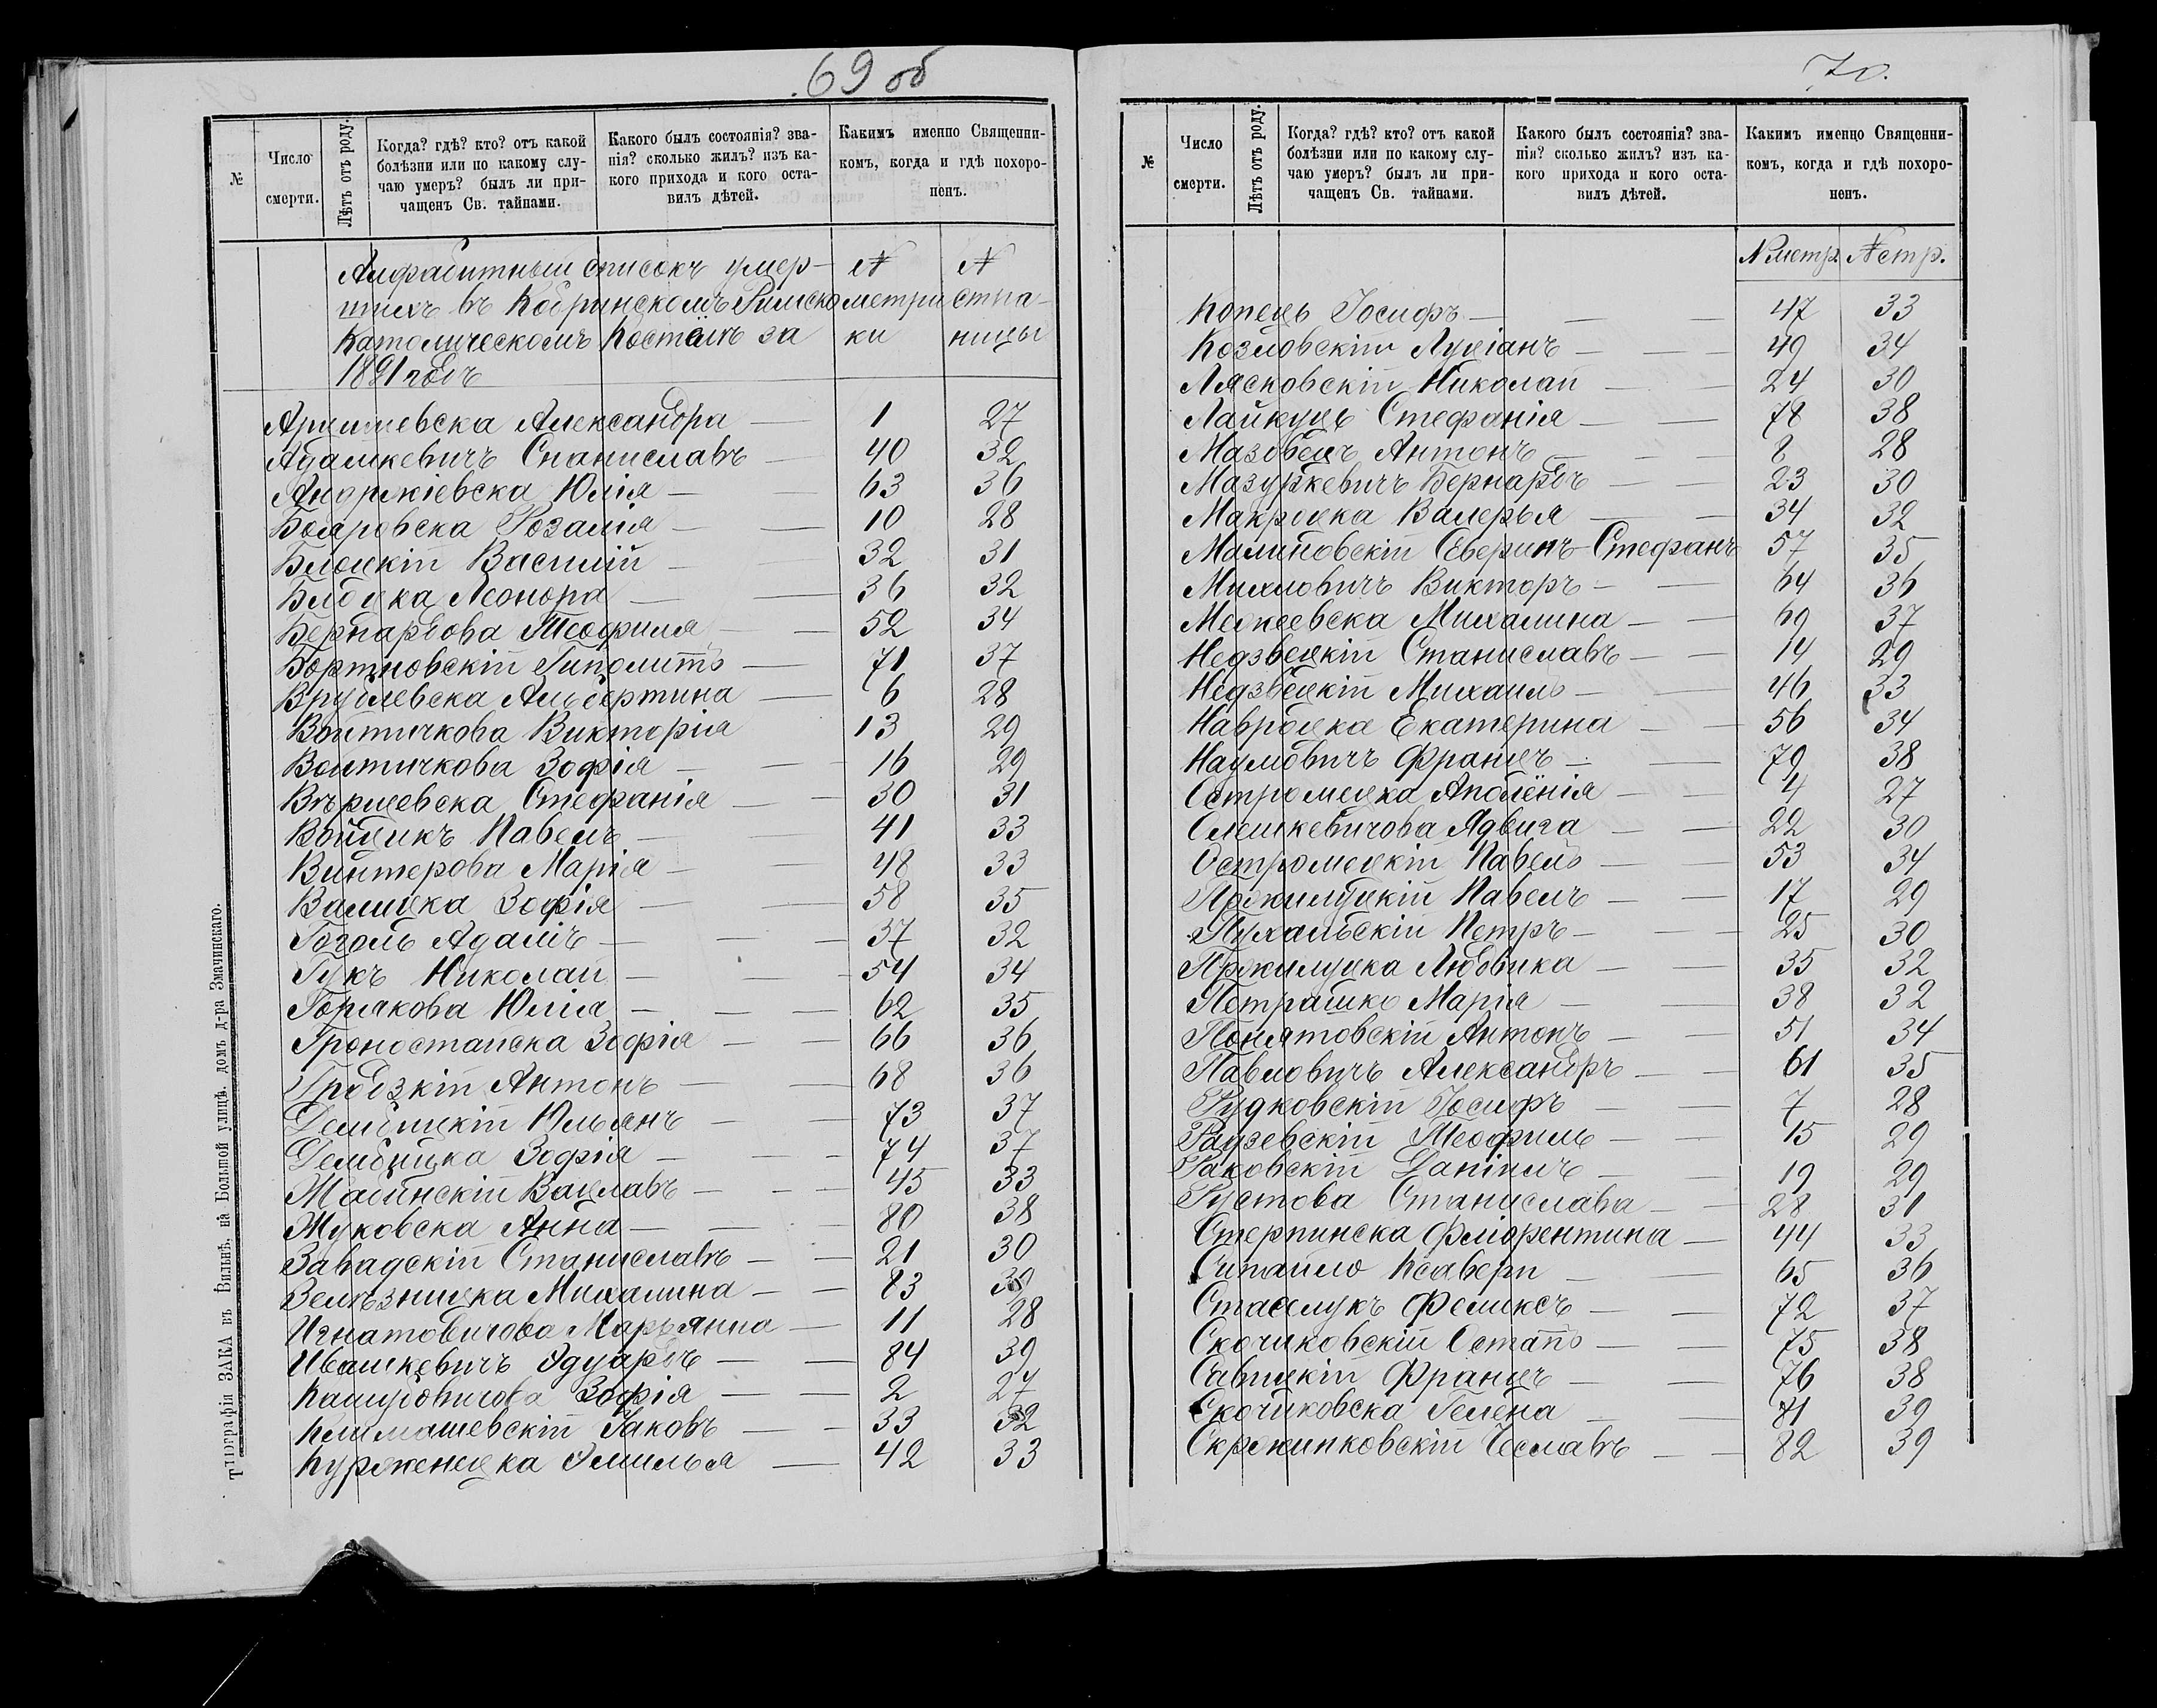 69 об
№
Число смерти.
Лѣтъ отъ роду.
Когда? гдѣ? кто? отъ какой
болѣзни или по какому слу-
чаю умеръ? былъ ли при-
чащенъ Св. тайнами.
Какого былъ состоянія? зва-
нія? сколько жилъ? изъ ка-
кого прихода и кого оста-
вилъ дѣтей.
Какимъ именно Священни-
комъ, когда и гдѣ похоро-
ненъ.
Алфабитный списокъ умер- № №
шихъ въ Кобринскомъ Римско метри стра-
Католическомъ Костелѣ за ки ницы
1891 годъ
Александра 1 27
Адамкевичъ Станиславъ 40 32
Андржіевска Юлія 63 36
Бояровска Розалія 10 28
Блоцкій Василій 32 31
Блоцка Леонора 36 32
Бернардова Теофиля 52 34
Бортновскій Гиполитъ 71 37
Врублевска Альбертина 6 28
Войтичкова Викторія 13 29
Войтичкова Зофія 16 29
Вѣрцевска Стефанія 30 31
Войцикъ Павелъ 41 33
Винтерова Марія 48 33
Валицка Зофія 58 35
Гоголь Адамъ 37 32
Гукъ Николай 54 34
Горлкова Юлія 62 35
Гроностайска Зофія 66 36
Гродзкій Антонъ 68 36
Дембицкій Юльянъ 73 37
Дембицка Зофія 74 37
Жабинскій Вацлавъ 45 33
Жуковска Анна 80 38
Завадскій Станиславъ 21 30
Зелѣзницка Михалина 83 39
Игнатовичова Марьянна 11 28
Ивашкевичъ Эдуардъ 84 39
Кашубовичова Зофія 2 27
Климашевскій Яковъ 33 32
Курженецка Эмилья 42 33
Типографія ЗАКА въ Вильнѣ, на Большой улицѣ, домъ д-ра Змачинскаго.
70.
№
Число
смерти.
Лѣтъ отъ роду.
Когда? гдѣ? кто? отъ какой
болѣзни или по какому слу-
чаю умеръ? былъ ли при-
чащенъ Св. тайнами.
Какого былъ состоянія? зва-
нія? сколько жилъ? изъ ка-
кого прихода и кого оста-
вилъ дѣтей.
Какимъ именно Священни-
комъ, когда и гдѣ похоро-
ненъ.
№ метр. № стр.
Копець Іосифъ 47 33
Козловскій Луціанъ 49 34
Лясковскій Николай 24 30
Лайкуць Стефанія 78 38
Мазовецъ Антонъ 8 28
Мазуркевичъ Бернардъ 23 30
Макроцка Валерья 34 32
Малиновскій Северинъ-Стефанъ 57 35
Михловичъ Викторъ 64 36
Михалина 69 37
Недзвецкій Станиславъ 14 29
Недзвецкій Михаилъ 46 33
Навроцка Екатерина 56 34
Наумовичъ Францъ 79 38
Остромецка Аполёнія 4 27
Олешкевичова Ядвига 22 30
Остромецкій Павелъ 53 34
Пржилуцкій Павелъ 17 29
Пухальскій Петръ 25 30
Пржилуцка Людовика 35 32
Петрашко Марія 38 32
Понятовскій Антонъ 51 34
Павловичъ Александръ 61 35
Рудковскій Іосифъ 7 28
Раузевскій Теофиль 15 29
Раковскій Даніилъ 19 29
Рустова Станислава 28 31
Стерпинска Флёрентина 44 33
Сипайло Ксавери 65 36
Стаселукъ Феликсъ 72 37
Скочиковскій Остапъ 75 38
Савицкій Францъ 76 38
Скочиковска Гелена 81 39
Скржинковскій Чеславъ 82 39